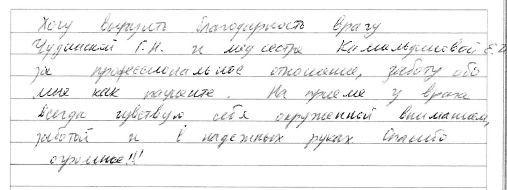 Хочу выразить благодарность врачу
Чудинской Г.Н. и медсестре Камалтдиновой Е.
за профессиональное отношение, заботу обо
мне как пациенте. На приеме у врача
всегда чувствую себя окруженной вниманием,
заботой и в надежных руках. Спасибо
огромное!!!